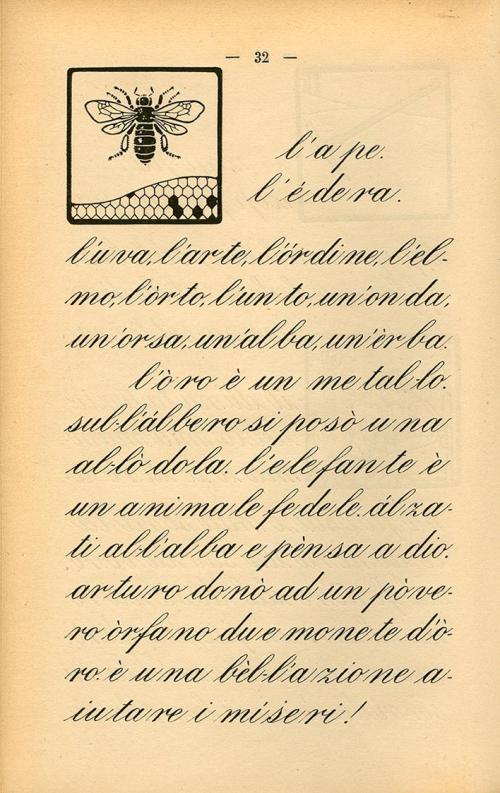 — 32 —
l'a pe.
l'é de ra.
l'ú va, l'ar te, l'ór di ne, l'él-
mo, l'òr to, l'un to, un'on da,
un'or sa, un'al ba, un'èr ba.
l'ò ro è un me tal-lo.
sul-l'ál be ro si po sò u na
al-lò do la. l'e le fan te è
un a ni ma le fe de le. ál za-
ti al-l'al ba e pèn sa a dio.
ar tu ro do nò ad un pò ve-
ro òr fa no du e mo ne te d'ò-
ro. è u na bèl-l'a zio ne a-
iu ta re i mí se ri!